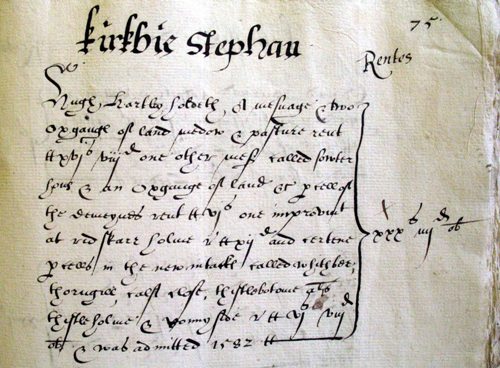 75
Kirkbie Stephan
Rentes
Hugh Hartley holdeth, A mesuage & two
Oxgaugh of land medow & pasture rent
xvjs viijd one other mess called sowter
& an Oxgange of land &c pcell of
the demeynes rent vjs one improvmt
at rid skarr holme xijd and certene
pcells in the new intack called
thorngill, calff close, thistlebotome als
thistleholme & Vonnyside vjs viijd
ob & was admitted 1582
xxxs iiijd ob